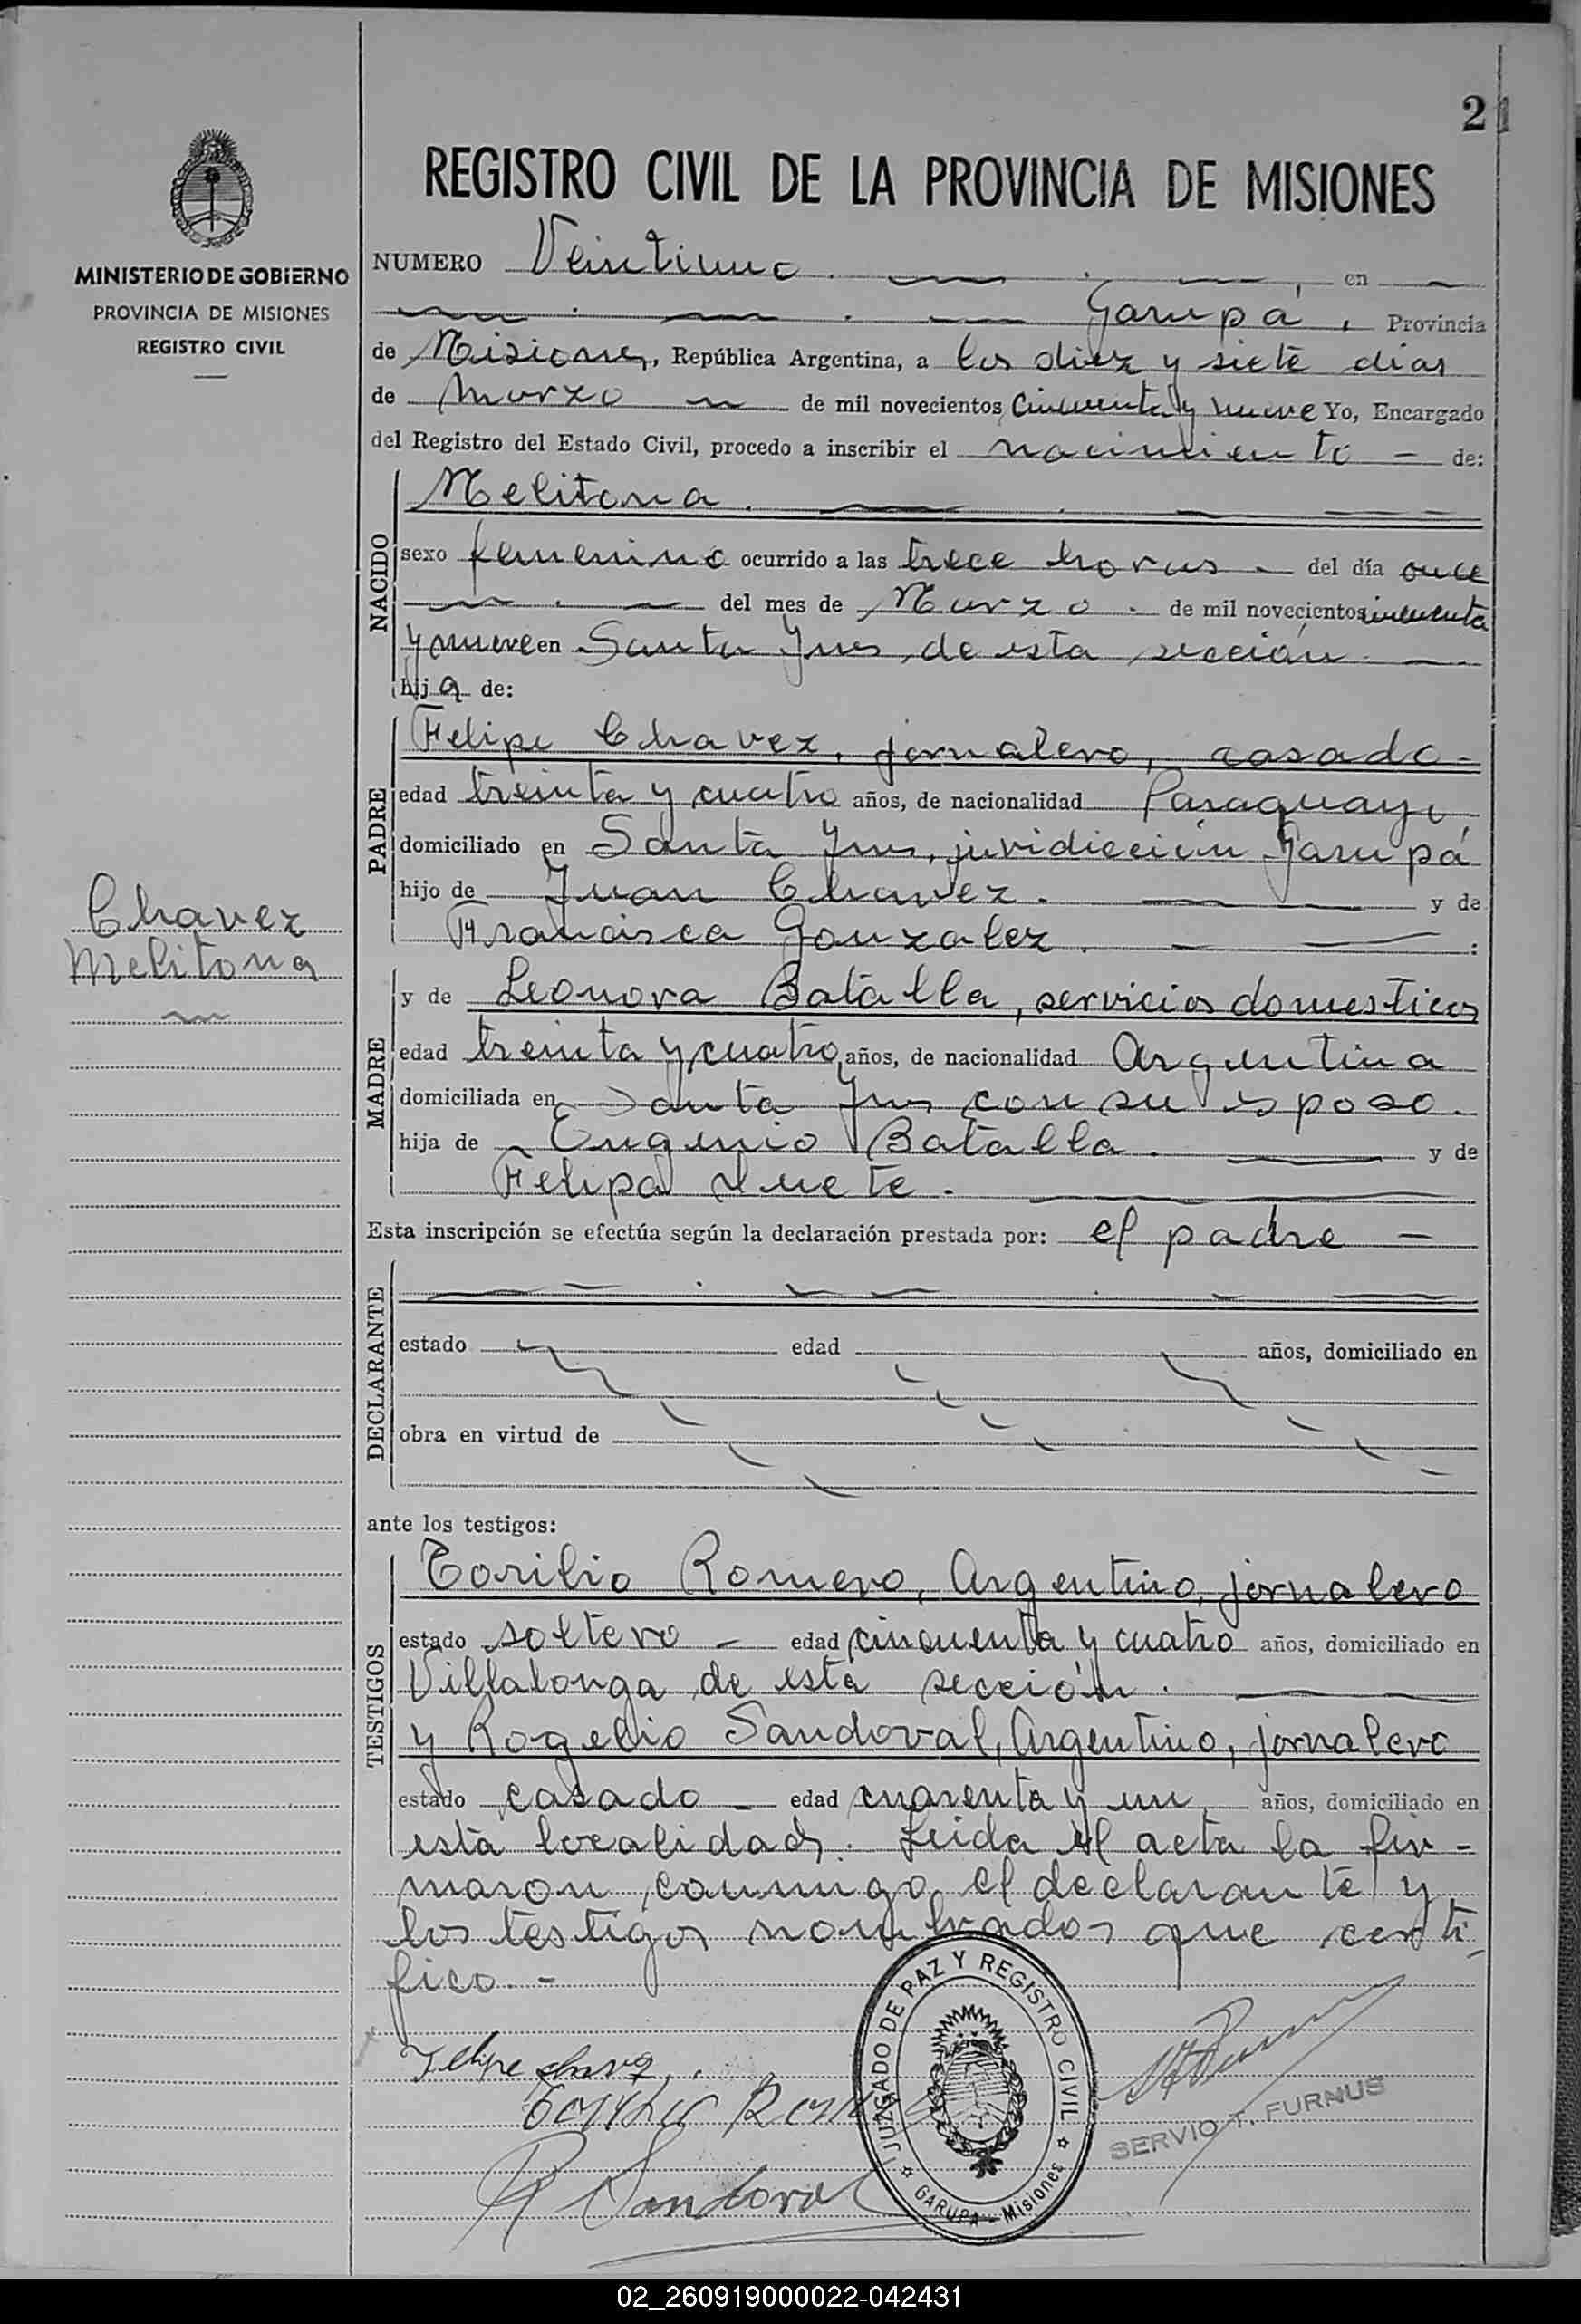 21
MINISTERIO DE GOBIERNO
PROVINCIA DE MISIONES
REGISTRO CIVIL
REGISTRO CIVIL DE LA PROVINCIA DE MISIONES
NUMERO Veintiuno en
Garupá, Provincia
de Misiones, República Argentina, a los diez y siete dias
de Marzo de mil novecientos cincuenta y nueve Yo, Encargado
del Registro del Estado Civil, procedo a inscribir el nacimiento de:
NACIDO
Melitona.
sexo femenino ocurrido a las trece horas del día once
del mes de Marzo de mil novecientos cincuenta
y nueve en Santa Ynes, de esta sección
hija de:
PADRE
Felipe Chavez, jornalero, casado
edad treinta y cuatro años, de nacionalidad Paraguayo,
domiciliado en Santa Ynes, juridicción Garupá
hijo de Juan Chavez. y de
Francisca Gonzalez.
Chavez
Melitona
MADRE
y de Leonora Batalla, servicios domesticos
edad treinta y cuatro años, de nacionalidad Argentina
domiciliada en Santa Ynes con su esposo.
hija de Eugenio Batalla. y de
Felipa
Esta inscripción se efectúa según la declaración prestada por: el padre
DECLARANTE
estado edad años, domiciliado en
obra en virtud de
ante los testigos:
TESTIGOS
Toribio Romero, Argentino, jornalero
estado soltero edad cincuenta y cuatro años, domiciliado en
Villalonga de esta sección.
y Rogelio Sandoval, Argentino, jornalero
estado casado edad cuarenta y un años, domiciliado en
esta localidad. Leida el acta la fir-
maron conmigo el declarante y
los testigos nombrados que certi-
fico.-
Felipe Chavez
Toribio Rom
R Sandoval
JUZGADO DE PAZ Y REGISTRO CIVIL
GARUPA - Misiones
SERVIO T. FURNUS
02_260919000022-042431